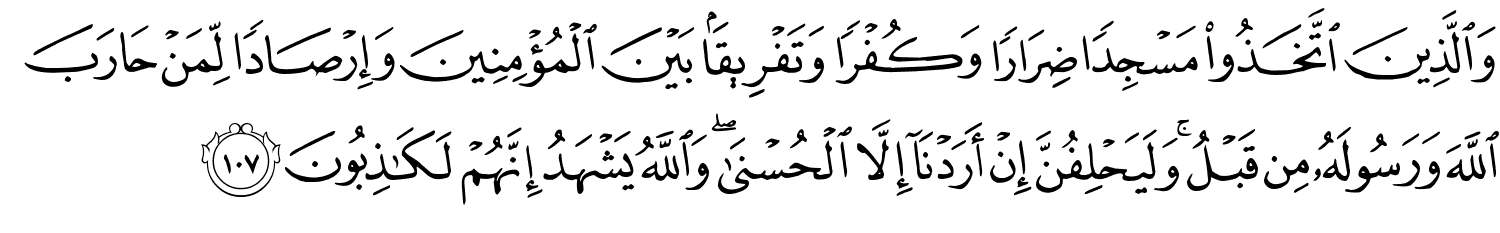 وَٱلَّذِينَ ٱتَّخَذُوا۟ مَسْجِدًا ضِرَارًا وَكُفْرًا وَتَفْرِيقًۢا بَيْنَ ٱلْمُؤْمِنِينَ وَإِرْصَادًا لِّمَنْ حَارَبَ
ٱللَّهَ وَرَسُولَهُۥ مِن قَبْلُ ۚ وَلَيَحْلِفُنَّ إِنْ أَرَدْنَآ إِلَّا ٱلْحُسْنَىٰ ۖ وَٱللَّهُ يَشْهَدُ إِنَّهُمْ لَكَـٰذِبُونَ ١٠٧